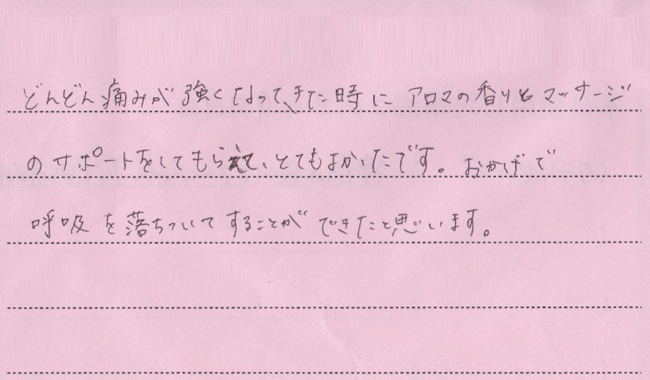 どんどん痛みが強くなってきた時に アロマの香りとマッサージ
のサポートをしてもらえて、とてもよかったです。おかげで
呼吸を落ちついてすることができたと思います。